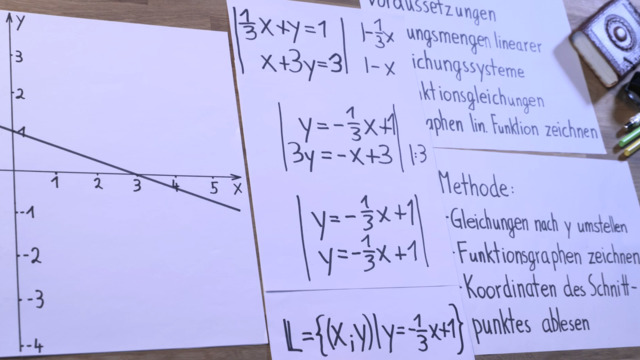 y
3
2
1
1 2 3 4 5 x
-1
-2
-3
-4
|1/3x+y=1| |-1/3x
|x+3y=3| |-x
|y=-1/3x+1|
|3y=-x+3| |:3
|y=-1/3x+1|
|y=-1/3x+1|
𝕃={(x;y)|y=-1/3x+1}
oraussetzungen
ungsmengen linearer
ichungssysteme
ktionsgleichungen
aphen lin. Funktion zeichnen
Methode:
·Gleichungen nach y umstellen
·Funktionsgraphen zeichnen
·Koordinaten des Schnitt-
punktes ablesen